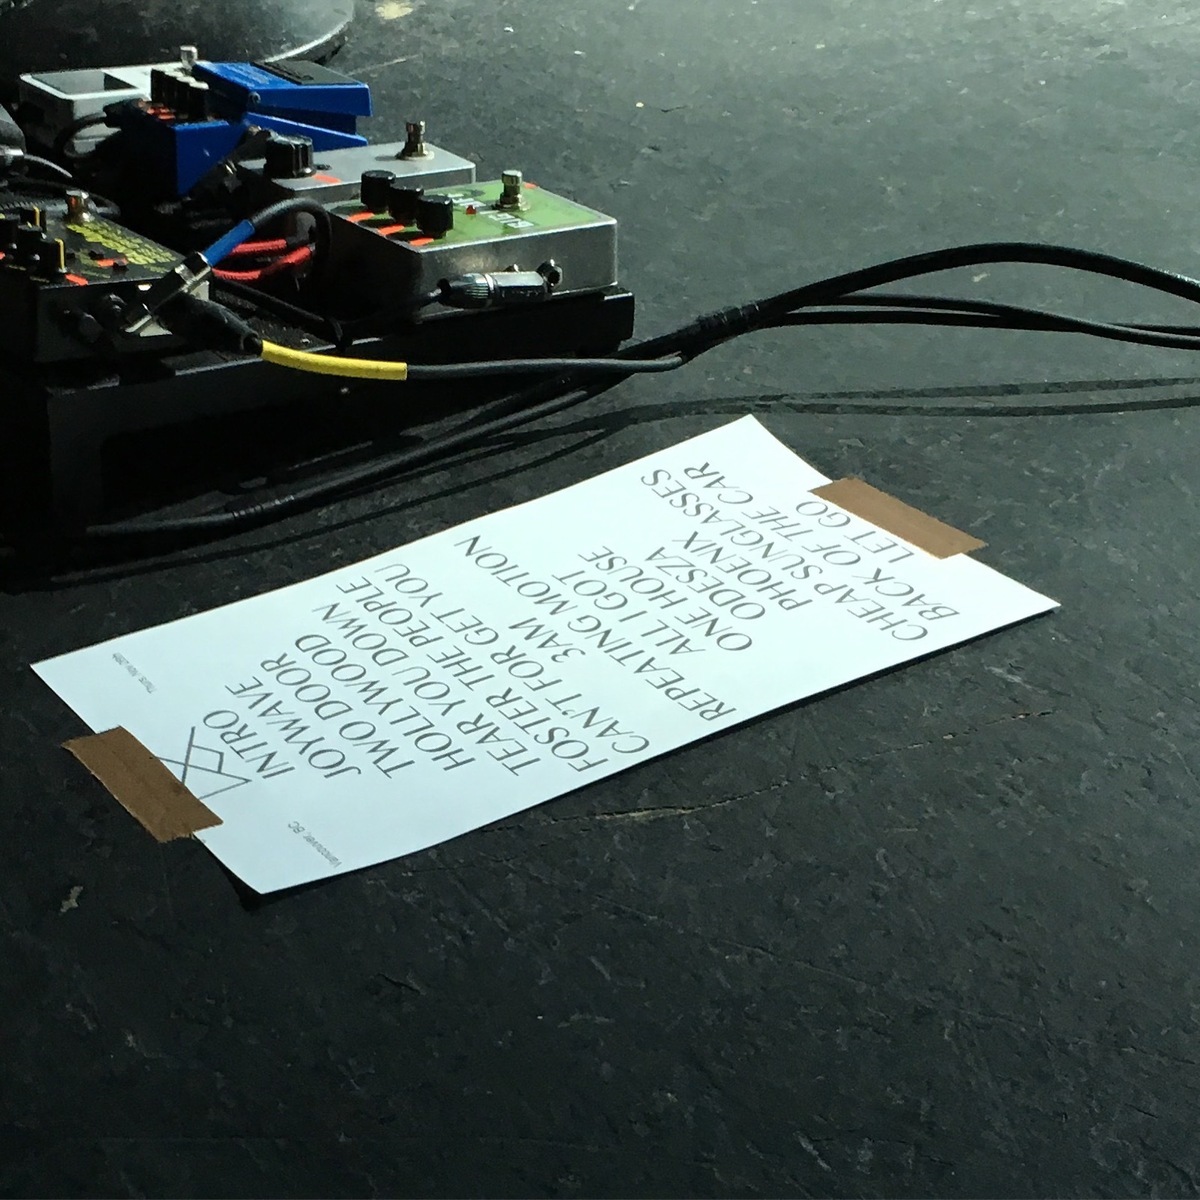 Vancouver, BC
Thurs. Nov 26th
INTRO
JOYWAVE
TWO DOOR
HOLLYWOOD
TEAR YOU DOWN
FOSTER THE PEOPLE
CAN'T FOR GET YOU
3AM MOTION
REPEATING
ALL I GOT
ONE HOUSE
ODESZA
PHOENIX
CHEAP SUNGLASSES
BACK OF THE CAR
LET GO